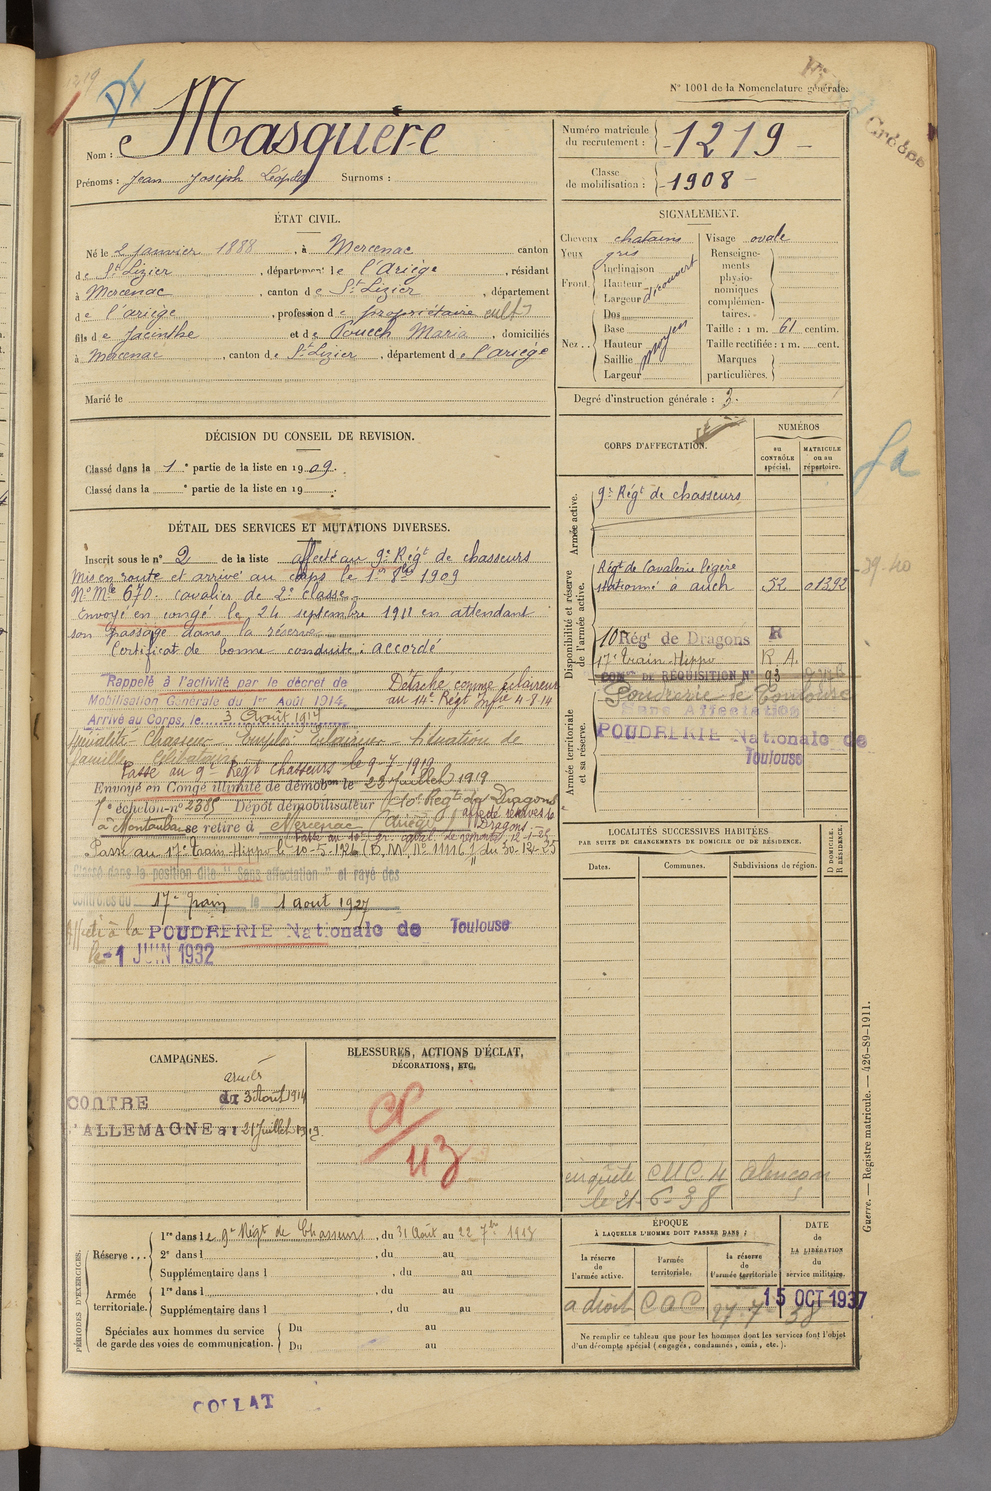 1219
N° 1001 de la Nomenclature générale.
Nom : Masquère
Prénoms : Jean Joseph Léopold Surnoms :
Numéro matricule du recrutement : 1219
Classe de mobilisation : 1908
ÉTAT CIVIL.
Né le 2 janvier 1888, à Mercenac canton
de St Lizier, département de l'Ariège, résidant
à Mercenac, canton de St Lizier, département
de l'ariège, profession de propriétaire cultr
fils de Jacinthe et de Pouech Maria, domiciliés
à Mercenac, canton de St Lizier, département de l'ariège
Marié le
SIGNALEMENT.
Cheveux chatains
Yeux gris
Front. Inclinaison
Hauteur
Largeur
découvert
Nez Dos
Base
Hauteur
Saillie
Largeur
moyen
Visage ovale
Renseignements physionomiques complémentaires.
Taille : 1 m. 61 centim.
Taille rectifiée : 1 m. cent.
Marques particulières.
Degré d'instruction générale : 3.
DÉCISION DU CONSEIL DE REVISION.
Classé dans la 1e partie de la liste en 1909.
Classé dans la e partie de la liste en 19 .
DÉTAIL DES SERVICES ET MUTATIONS DIVERSES.
Inscrit sous le n° 2 de la liste affecté au 9e Régt de chasseurs
Mis en route et arrivé au corps le 1er 8bre 1909
N° Mle 670. cavalier de 2e classe.
Envoyé en congé le 24 septembre 1911 en attendant
son passage dans la réserve.
Certificat de bonne conduite : accordé
Rappelé à l'activité par le décret de
Mobilisation Générale du 1er Août 1914,
Arrivé au Corps, le 3 Août 1914
Détaché comme éclaireur
au 14e Régt Infie 4-8-14
Spécialité Chasseur Emploi Eclaireur Situation de
famille Célibataire
Passé au 9e Régt chasseurs le 9-7-1919
Envoyé en Congé illimité de démobon le 22 Juillet 1919
7e échelon n° 2385 Dépôt démobilisateur 10e Regt de Dragons
à Montauban se retire à Mercenac (Ariège)
Passé au 17e Train-Hippo le 10-5-1926 (D.M. N° 11116 du 30-12-25
Classé dans la position dite "Sans affectation" et rayé des
contrôles du 17e train le 1 août 1927
Affecté à la POUDRERIE Nationale de Toulouse
le -1 JUIN 1932
CORPS D'AFFECTATION.
NUMÉROS
au CONTRÔLE spécial.
MATRICULE ou au répertoire.
Armée active.
9e Régt de chasseurs
Disponibilité et réserve de l'armée active.
Régt de Cavalerie légère
stationné à auch 52 01392
39-40
10 Régt de Dragons R
17e Train-Hippo R.A.
COMon DE REQUISITION N° 93
Poudrerie de Toulouse
Sans Affectation
Armée territoriale et sa réserve.
POUDRERIE Nationale de
Toulouse
LOCALITÉS SUCCESSIVES HABITÉES
PAR SUITE DE CHANGEMENTS DE DOMICILE OU DE RÉSIDENCE.
Dates. Communes. Subdivisions de région.
D DOMICILE.
R RÉSIDENCE.
enquête C.M.C. 4 Alençon
le 21-6-38
CAMPAGNES.
CONTRE du 3 Août 1914
L'ALLEMAGNE au 21 Juillet 1919
BLESSURES, ACTIONS D'ÉCLAT,
DÉCORATIONS, ETC.
PÉRIODES D'EXERCICES.
Réserve
1re dans le 9e Régt de Chasseurs, du 31 Août au 22 7bre 1913
2e dans l , du au
Supplémentaire dans l , du au
Armée territoriale.
1re dans l , du au
Supplémentaire dans l , du au
Spéciales aux hommes du service de garde des voies de communication.
Du au
Du au
ÉPOQUE
À LAQUELLE L'HOMME DOIT PASSER DANS :
la réserve de l'armée active.
l'armée territoriale.
la réserve de l'armée territoriale
DATE de LA LIBÉRATION du service militaire.
a droit C a C 27-7-38
15 OCT 1937
Ne remplir ce tableau que pour les hommes dont les services font l'objet
d'un décompte spécial (engagés, condamnés, omis, etc.).
Guerre. — Registre matricule. — 426-89-1911.